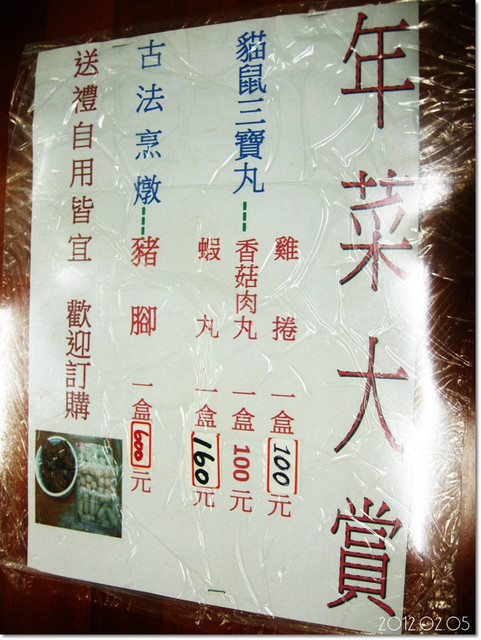 年菜大賞
貓鼠三寶丸
雞捲 一盒100元
香菇肉丸 一盒100元
蝦丸 一盒160元
古法烹燉
豬腳 一盒600元
送禮自用皆宜 歡迎訂購
2012.02.05